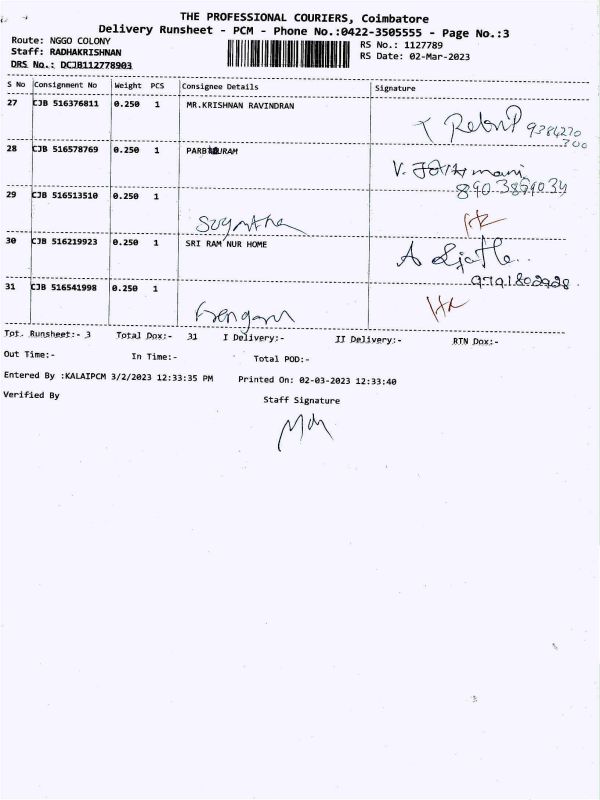 THE PROFESSIONAL COURIERS, Coimbatore
Delivery Runsheet - PCM - Phone No.:0422-3505555 - Page No.:3
Route: NGGO COLONY
RS No.: 1127789
Staff: RADHAKRISHNAN
RS Date: 02-Mar-2023
DRS No.: DCJB112778903
S No Consignment No Weight PCS Consignee Details Signature
27 CJB 516376811 0.250 1 MR.KRISHNAN RAVINDRAN
9384270
700
28 CJB 516578769 0.250 1
V.
8903899034
29 CJB 516513510 0.250 1
30 CJB 516219923 0.250 1 SRI RAM NUR HOME
A
9791802928
31 CJB 516541998 0.250 1
Tot. Runsheet:- 3 Total Dox:- 31 I Delivery:- II Delivery:- RTN Dox:-
Out Time:- In Time:- Total POD:-
Entered By :KALAIPCM 3/2/2023 12:33:35 PM Printed On: 02-03-2023 12:33:40
Verified By Staff Signature